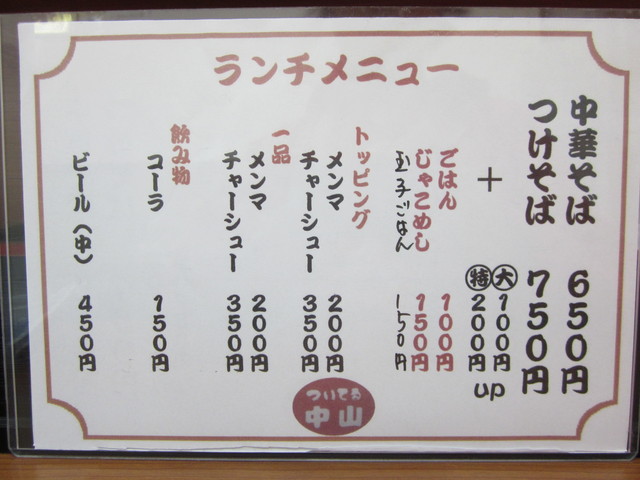 ランチメニュー
中華そば 650円
つけそば 750円
＋
大 100円
特 200円
up
ごはん 100円
じゃこめし 150円
玉子ごはん 150円
トッピング
メンマ 200円
チャーシュー 350円
一品
メンマ 200円
チャーシュー 350円
飲み物
コーラ 150円
ビール(中) 450円
ついてる
中山